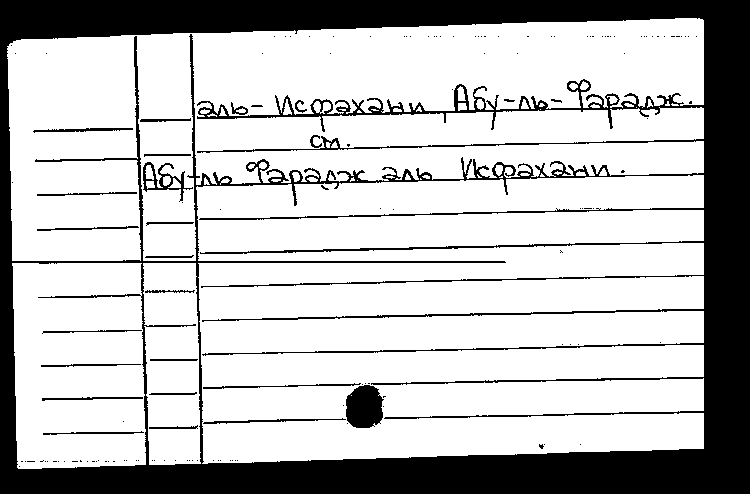 аль-Исфахани, Абу-ль-Фарадж.
см.
Абу-ль Фарадж аль Исфахани.